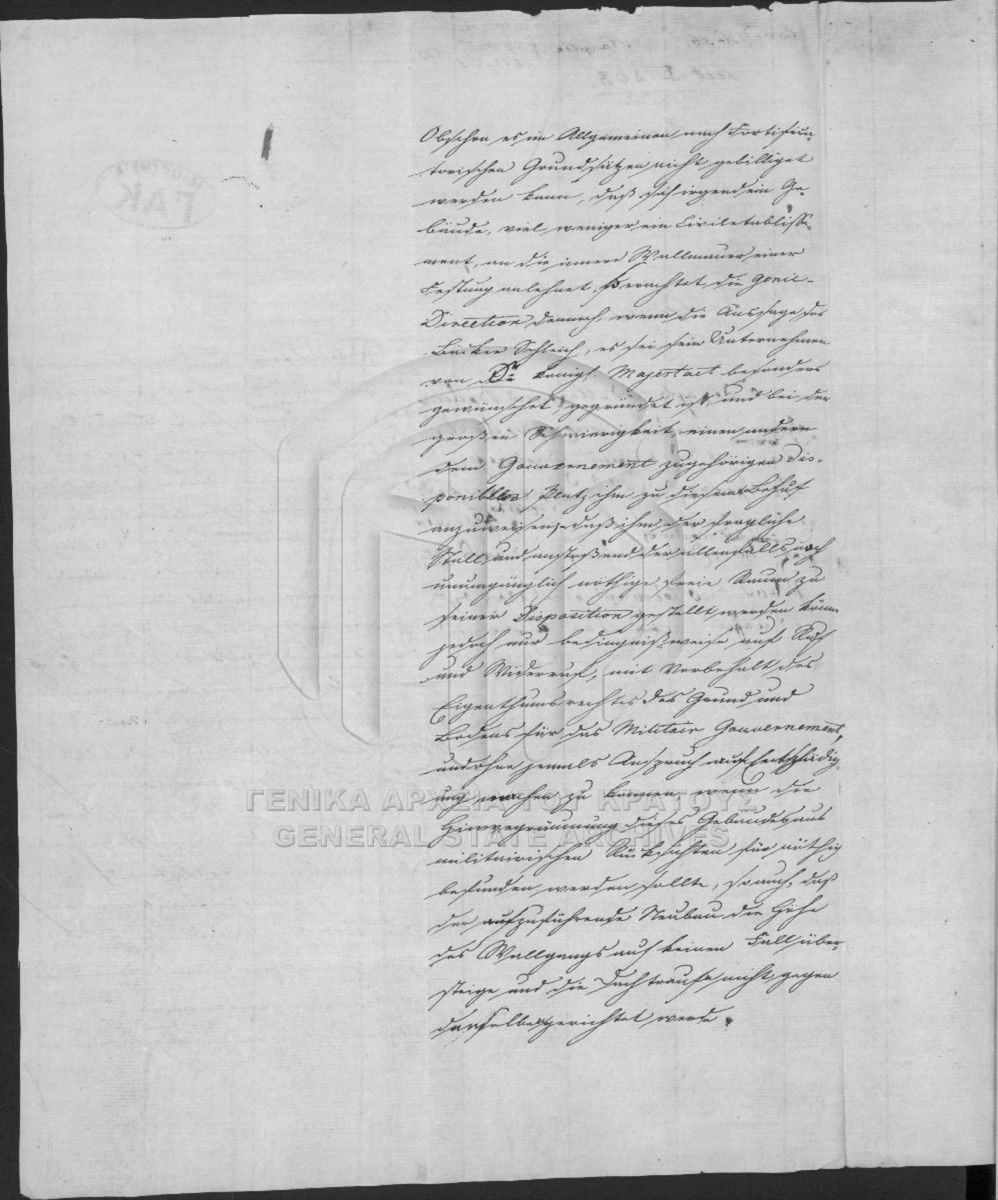 Obschon es im Allgemeinen nach Fortifica-
torischen Grundsätzen nicht gebilliget
werden kann, daß sich irgend ein Ge-
bäude, viel weniger ein Civiletablisse-
ment, an die innere Wallmauer einer
Festung anlehnt, so erachtet die Genie-
Direction dennoch, wenn die Aussage des
Bäcker Schleich, es sei sein Unternehmen
von Sr königl. Majestaet besonders
gewünschet, gegründet ist, und bei der
großen Schwierigkeit einen andern
dem Gouvernement zugehörigen dis-
poniblen Platz ihm zu diesem Behuf
anzuweisen, daß ihm der fragliche
Stall und anstoßend der allenfalls noch
unumgänglich nöthige freie Raum zu
seiner Disposition gestellt werden könne
jedoch nur bedingnißweise auf Ruf
und Widerruf, mit Vorbehalt des
Eigenthumsrechtes des Grund und
Bodens für das Militair Gouvernement,
und ohne jemals Anspruch auf Entschädig-
ung machen zu können, wenn die
Hinwegräumung dieses Gebäudes aus
militairischen Rücksichten für nöthig
befunden werden sollte, so auch, daß
der aufzuführende Neubau die Höhe
des Wallgangs auf keinen Fall über-
steige und die Dachtraufe nicht gegen
denselben gerichtet werde.
ΓΑΚ
ΓΕΝΙΚΑ ΑΡΧΕΙΑ ΤΟΥ ΚΡΑΤΟΥΣ
GENERAL STATE ARCHIVES